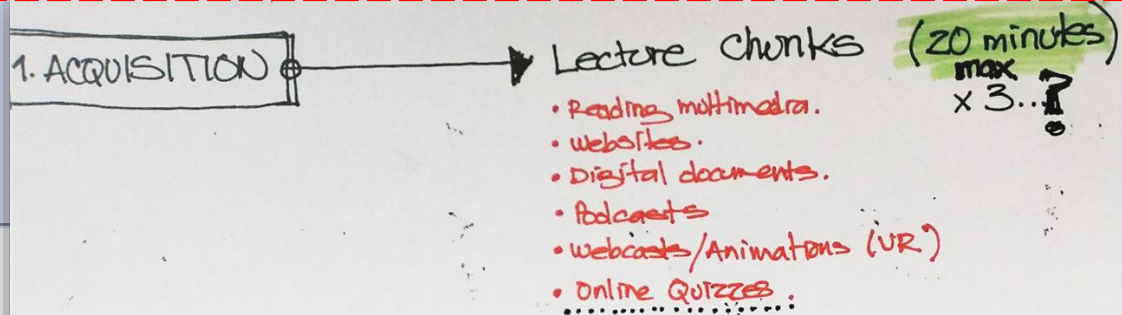 1. ACQUISITION
Lecture Chunks (20 minutes)
max
x 3...?
• Reading multimedia.
• websites.
• Digital documents.
• Podcasts
• Webcasts/Animations (VR?)
• Online Quizzes.